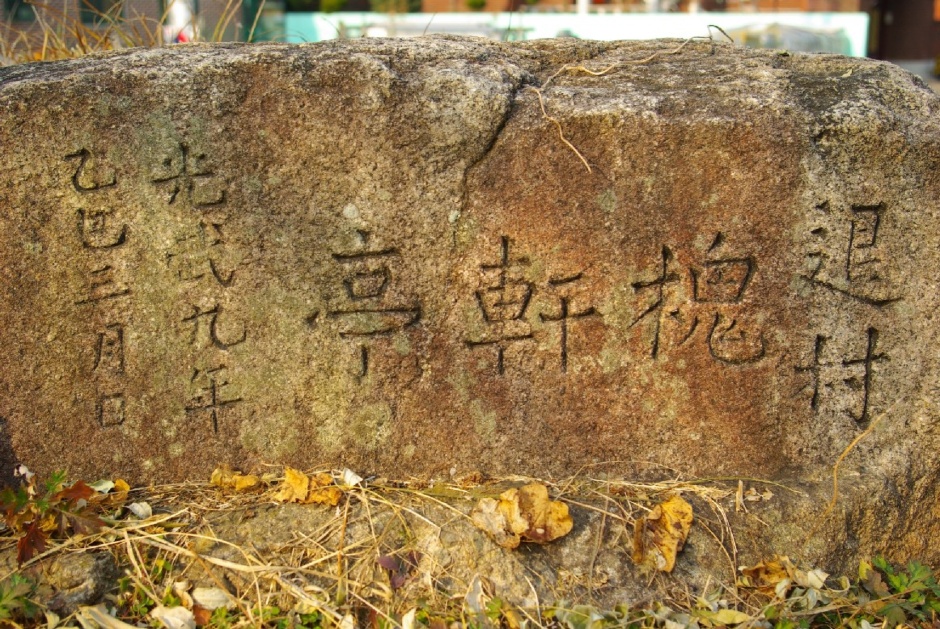 退村
槐軒亭
光武九年
乙巳三月日